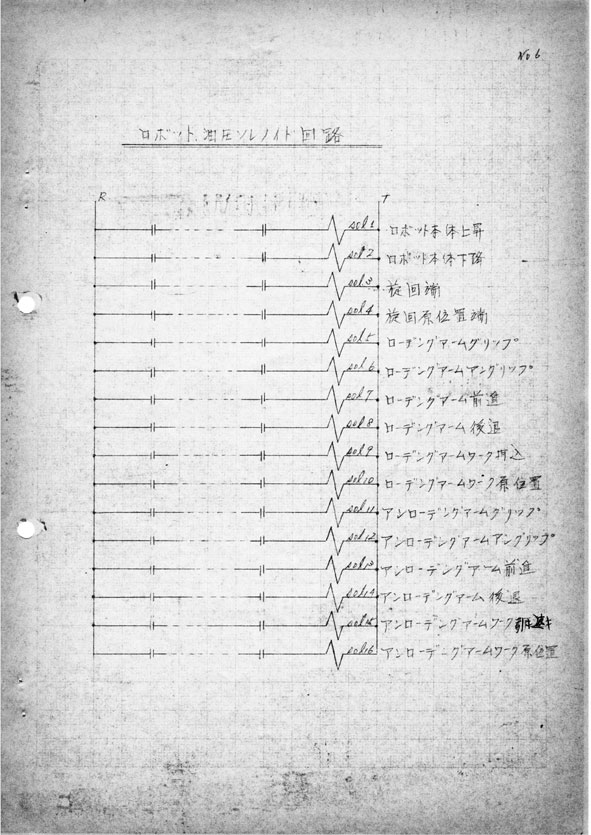 No 6
ロボット油圧ソレノイド回路
R T
sol 1 ロボット本体上昇
sol 2 ロボット本体下降
sol 3 旋回端
sol 4 旋回原位置端
sol 5 ローデングアームグリップ
sol 6 ローデングアームアングリップ
sol 7 ローデングアーム前進
sol 8 ローデングアーム後退
sol 9 ローデングアームワーク挿込
sol 10 ローデングアームワーク原位置
sol 11 アンローデングアームグリップ
sol 12 アンローデングアームアングリップ
sol 13 アンローデングアーム前進
sol 14 アンローデングアーム後退
sol 15 アンローデングアームワーク
sol 16 アンローデングアームワーク原位置